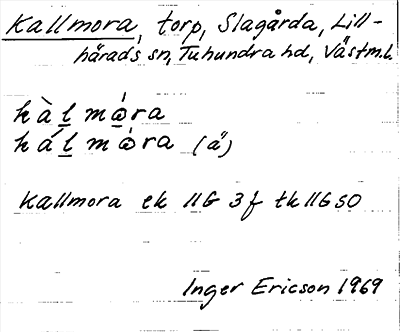 Kallmora, torp, Slagårda, Lill-
härads sn, Tuhundra hd, Västm.l.
kàl mȯ́ra
kál mȯ̀ra (ä)
Kallmora ek 11G 3f tk11G SO
Inger Ericson 1969